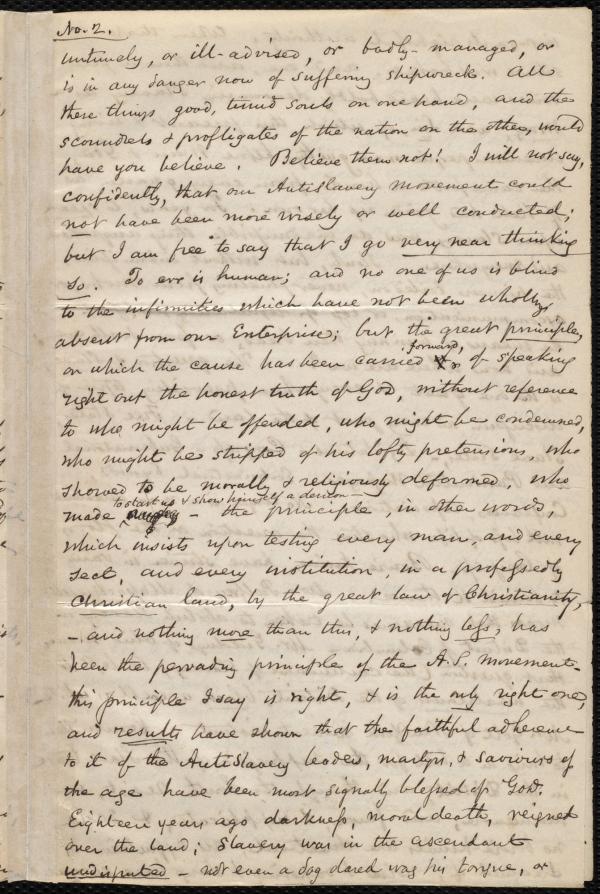 No. 2.
untimely, or ill-advised, or badly-managed, or
is in any danger now of suffering shipwreck. All
these things good, timid souls on one hand, and the
scoundrels & profligates of the nation on the other, would
have you believe. Believe them not! I will not say,
confidently, that our AntiSlavery movement could
not have been more wisely or well conducted;
but I am free to say that I go very near thinking
so. To err is human; and no one of us is blind
to the infirmities which have not been wholly
absent from our Enterprise; but the great principle,
on which the cause has been carried forward, of speaking
right out the honest truth of God, without reference
to who might be offended, who might be condemned,
who might be stripped of his lofty pretensions, who
showed to be morally & religiously deformed, who
made to start up & show himself a demon — – the principle, in other words,
which insists upon testing every man, and every
sect, and every institution, in a professedly
Christian land, by the great law of Christianity,
– and nothing more than this, & nothing less, has
been the pervading principle of the A.S. movement –
this principle I say is right, & is the only right one,
and results have shown that the faithful adherence
to it of the AntiSlavery leaders, martyrs, & saviours of
the age have been most signally blessed of God.
Eighteen years ago darkness, moral death, reigned
over the land; Slavery was in the ascendant
undisputed – not even a dog dared wag his tongue, or